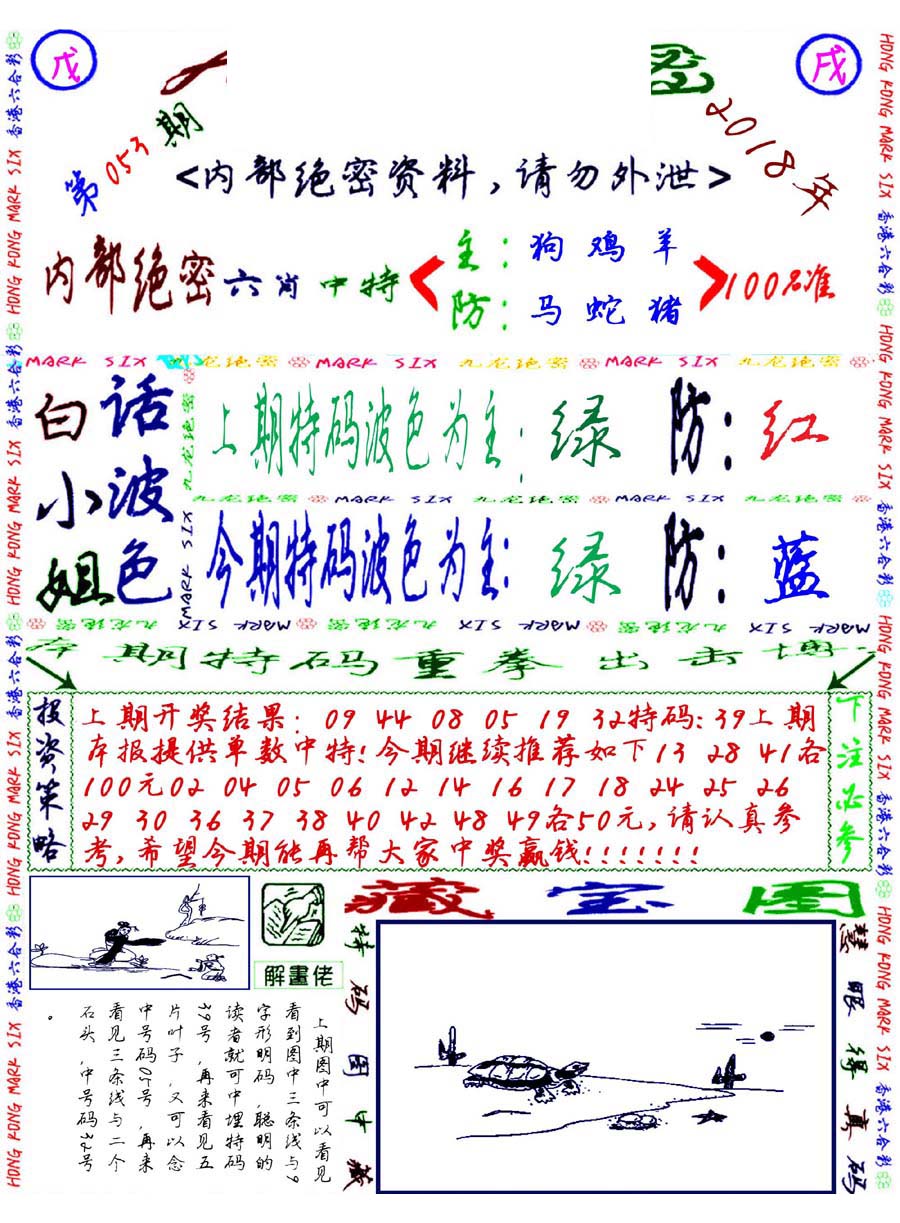 戊
戌
第053期
2018年
<内部绝密资料,请勿外泄>
内部绝密六肖中特
主:狗 鸡 羊
防:马 蛇 猪
100%准
MARK SIX 九龙绝密 MARK SIX 九龙绝密 MARK SIX 九龙绝密
白话
小波
姐色
上期特码波色为主:绿 防:红
九龙绝密 MARK SIX 九龙绝密 MARK SIX 九龙绝密
今期特码波色为主:绿 防:蓝
九龙绝密 MARK SIX 九龙绝密 MARK SIX 九龙绝密 MARK SIX
本期特码重拳出击博
投资策略
上期开奖结果: 09 44 08 05 19 32特码:39上期
本报提供单数中特!今期继续推荐如下13 28 41各
100元02 04 05 06 12 14 16 17 18 24 25 26
29 30 36 37 38 40 42 48 49各50元,请认真参
考,希望今期能再帮大家中奖赢钱!!!!!!!
下注必参
解畫佬
藏宝图
上期图中可以看见
看到图中三条线与9
字形明码,聪明的
读者就可中埋特码
39号,再来看见五
片叶子,又可以念
中号码05号,再来
看见三条线与二个
石头,中号码32号
。
特码图中藏
慧眼得真码
香港六合彩 HONG KONG MARK SIX 香港六合彩 HONG KONG MARK SIX 香港六合彩 HONG KONG MARK SIX 香港六合彩 HONG KONG MARK SIX
HONG KONG MARK SIX 香港六合彩 HONG KONG MARK SIX 香港六合彩 HONG KONG MARK SIX 香港六合彩 HONG KONG MARK SIX 香港六合彩